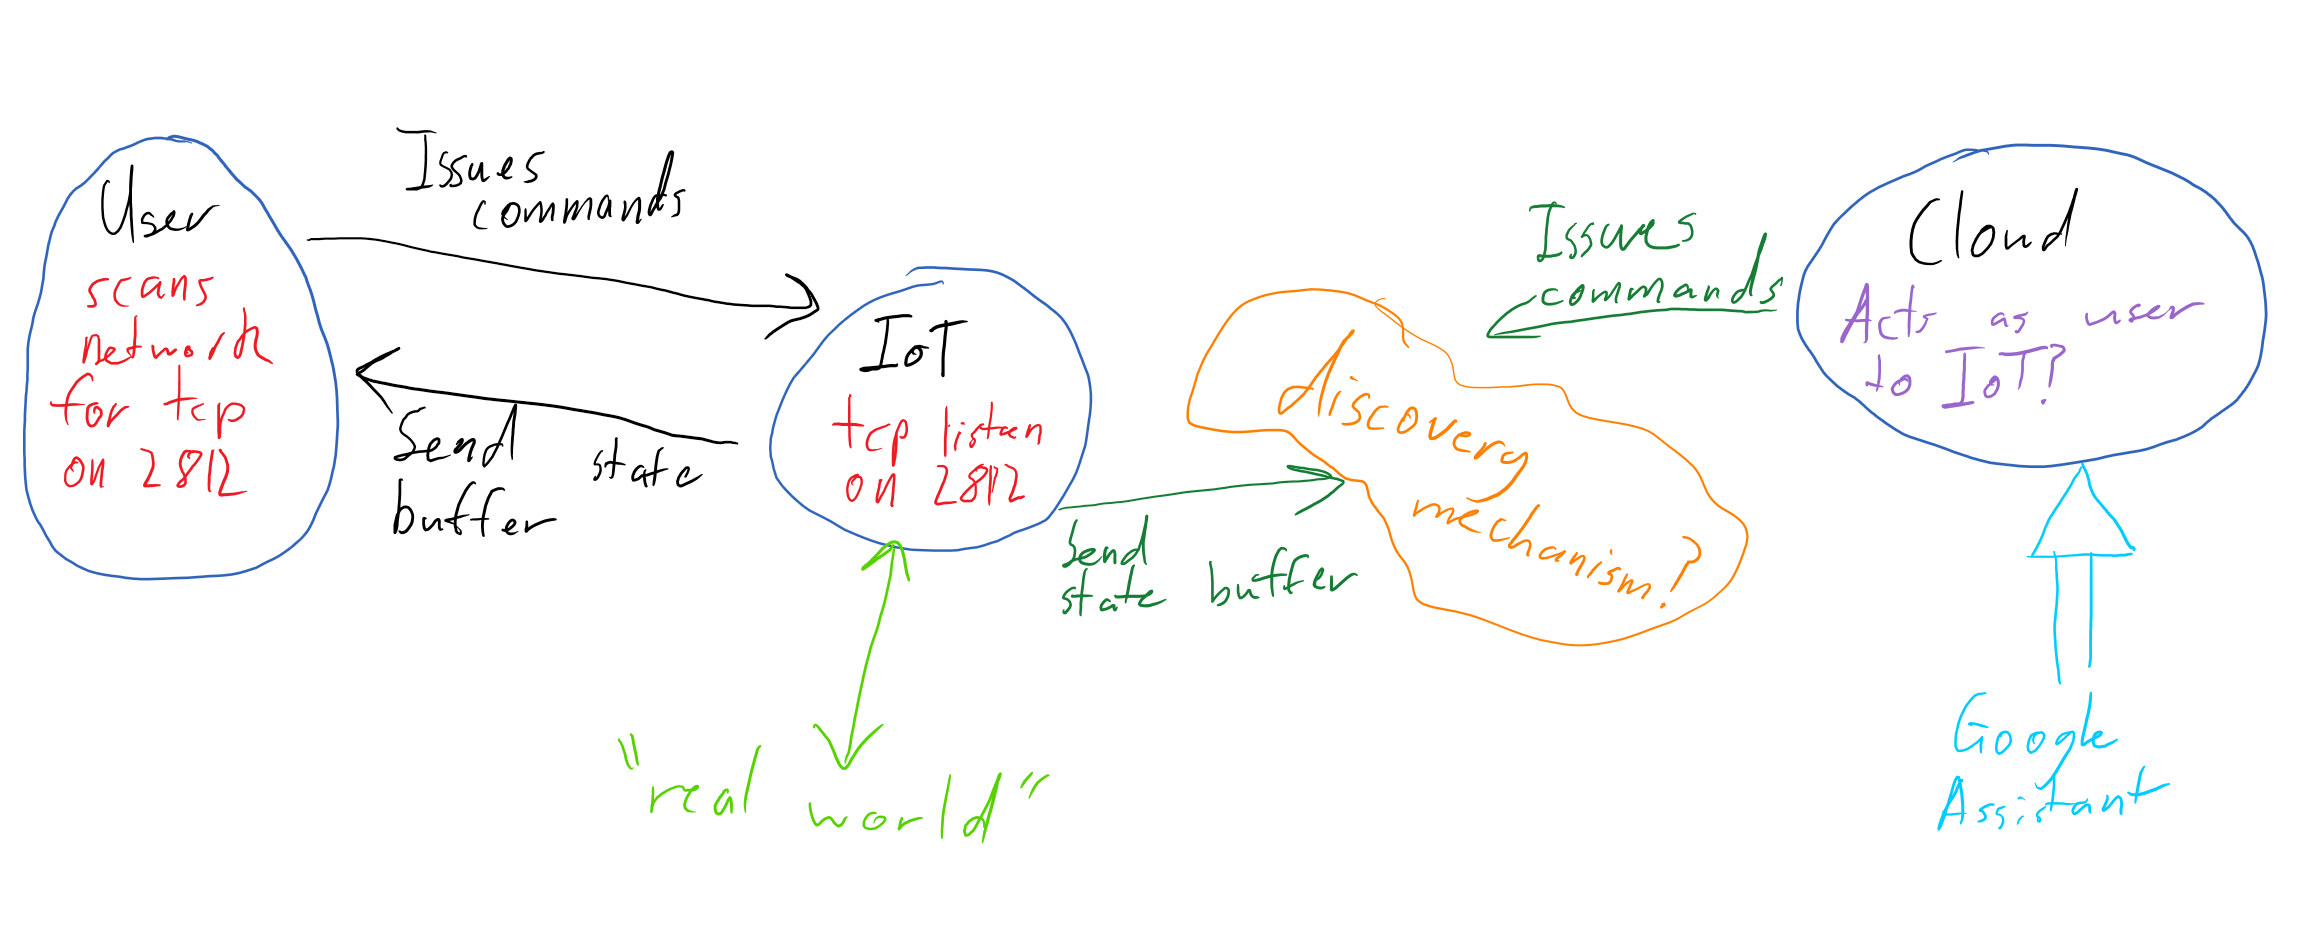 User
scans
network
for tcp
on 2812
Issues
commands
Send
state
buffer
IoT
tcp listen
on 2812
"real world"
Send
state buffer
discovery
mechanism?
Issues
commands
Cloud
Acts as user
to IoT?
Google
Assistant